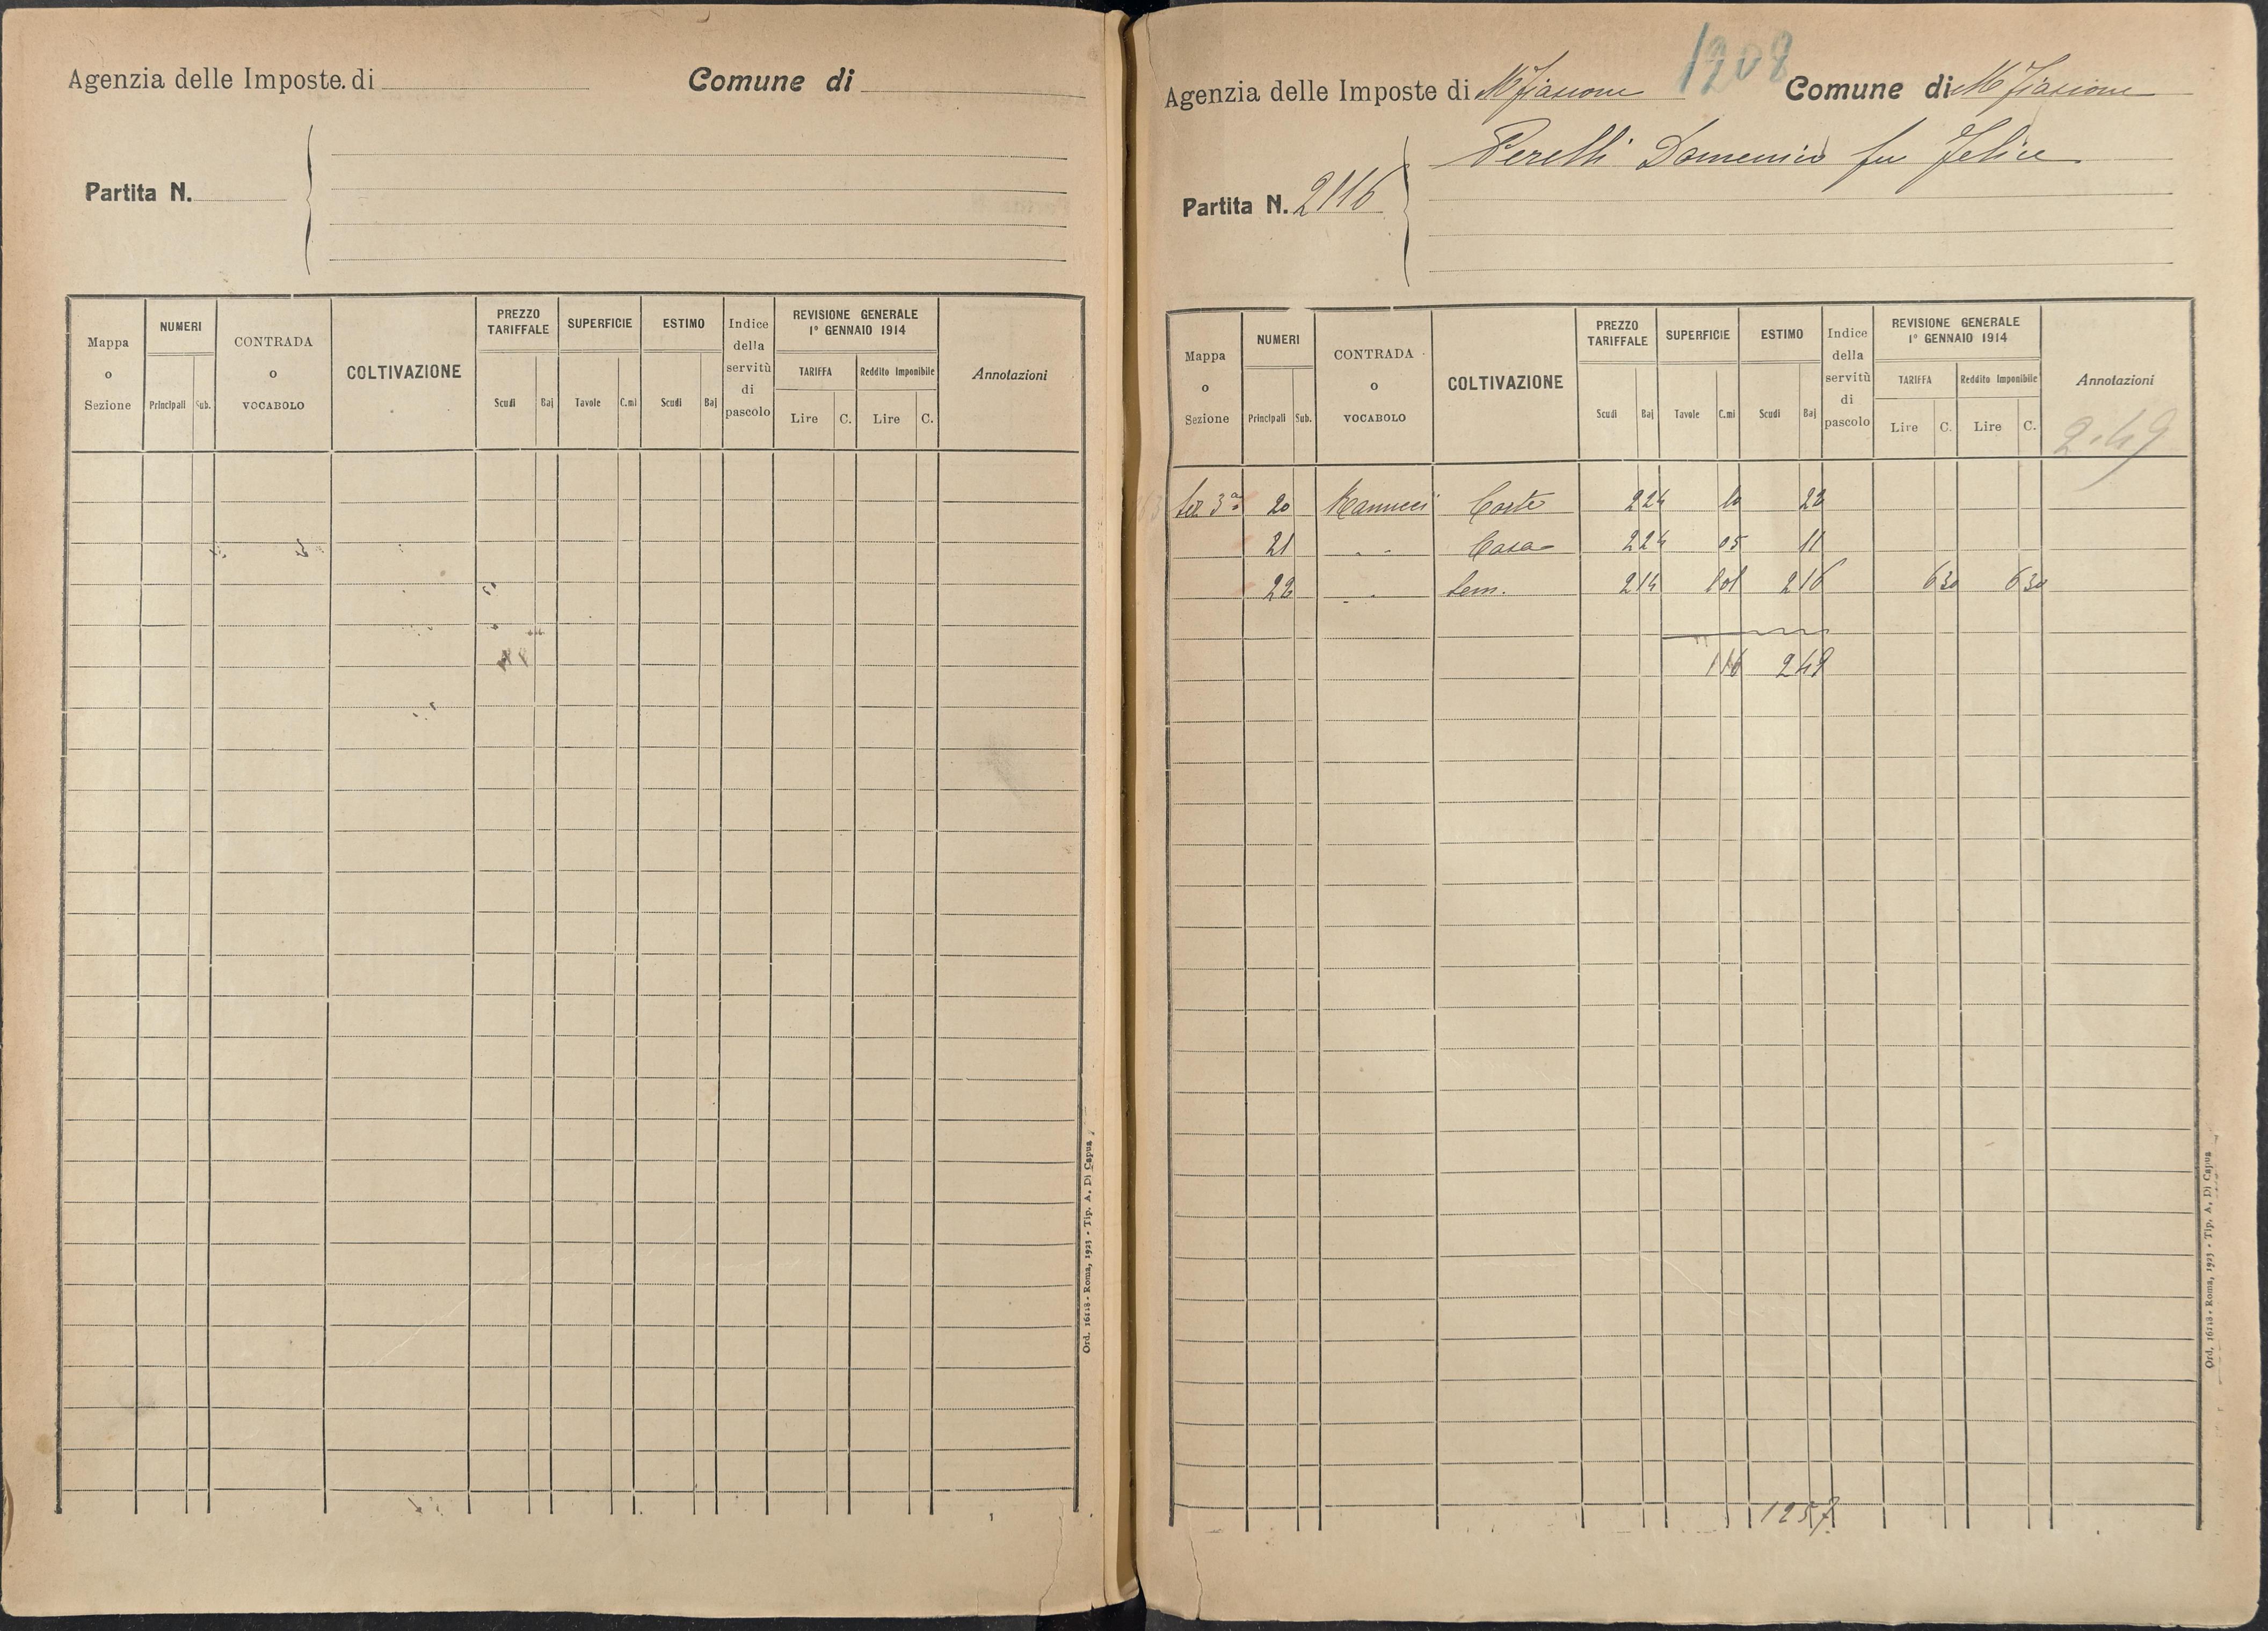 Agenzia delle Imposte di
Comune di
Partita N.
Mappa o Sezione
NUMERI
Principali Sub.
CONTRADA o VOCABOLO
COLTIVAZIONE
PREZZO TARIFFALE
Scudi Baj
SUPERFICIE
Tavole C.mi
ESTIMO
Scudi Baj
Indice della servitù di pascolo
REVISIONE GENERALE
1° GENNAIO 1914
TARIFFA Reddito Imponibile
Lire C. Lire C.
Annotazioni
Ord. 16118 - Roma, 1923 - Tip. A. Di Capua
1208
Agenzia delle Imposte di M Fiascone Comune di M Fiascone
Perelli Domenico fu Felice
Partita N. 2116
Mappa o Sezione
NUMERI
Principali Sub.
CONTRADA o VOCABOLO
COLTIVAZIONE
PREZZO TARIFFALE
Scudi Baj
SUPERFICIE
Tavole C.mi
ESTIMO
Scudi Baj
Indice della servitù di pascolo
REVISIONE GENERALE
1° GENNAIO 1914
TARIFFA Reddito Imponibile
Lire C. Lire C.
Annotazioni
2.49
Sez 3ª 20 Corte 2 24 10 22
21 Casa 2 24 05 11
22 Sem. 2 14 1 01 2 16 6 30 6 30
1 16 2 49
1257
Ord. 16118 - Roma, 1923 - Tip. A. Di Capua